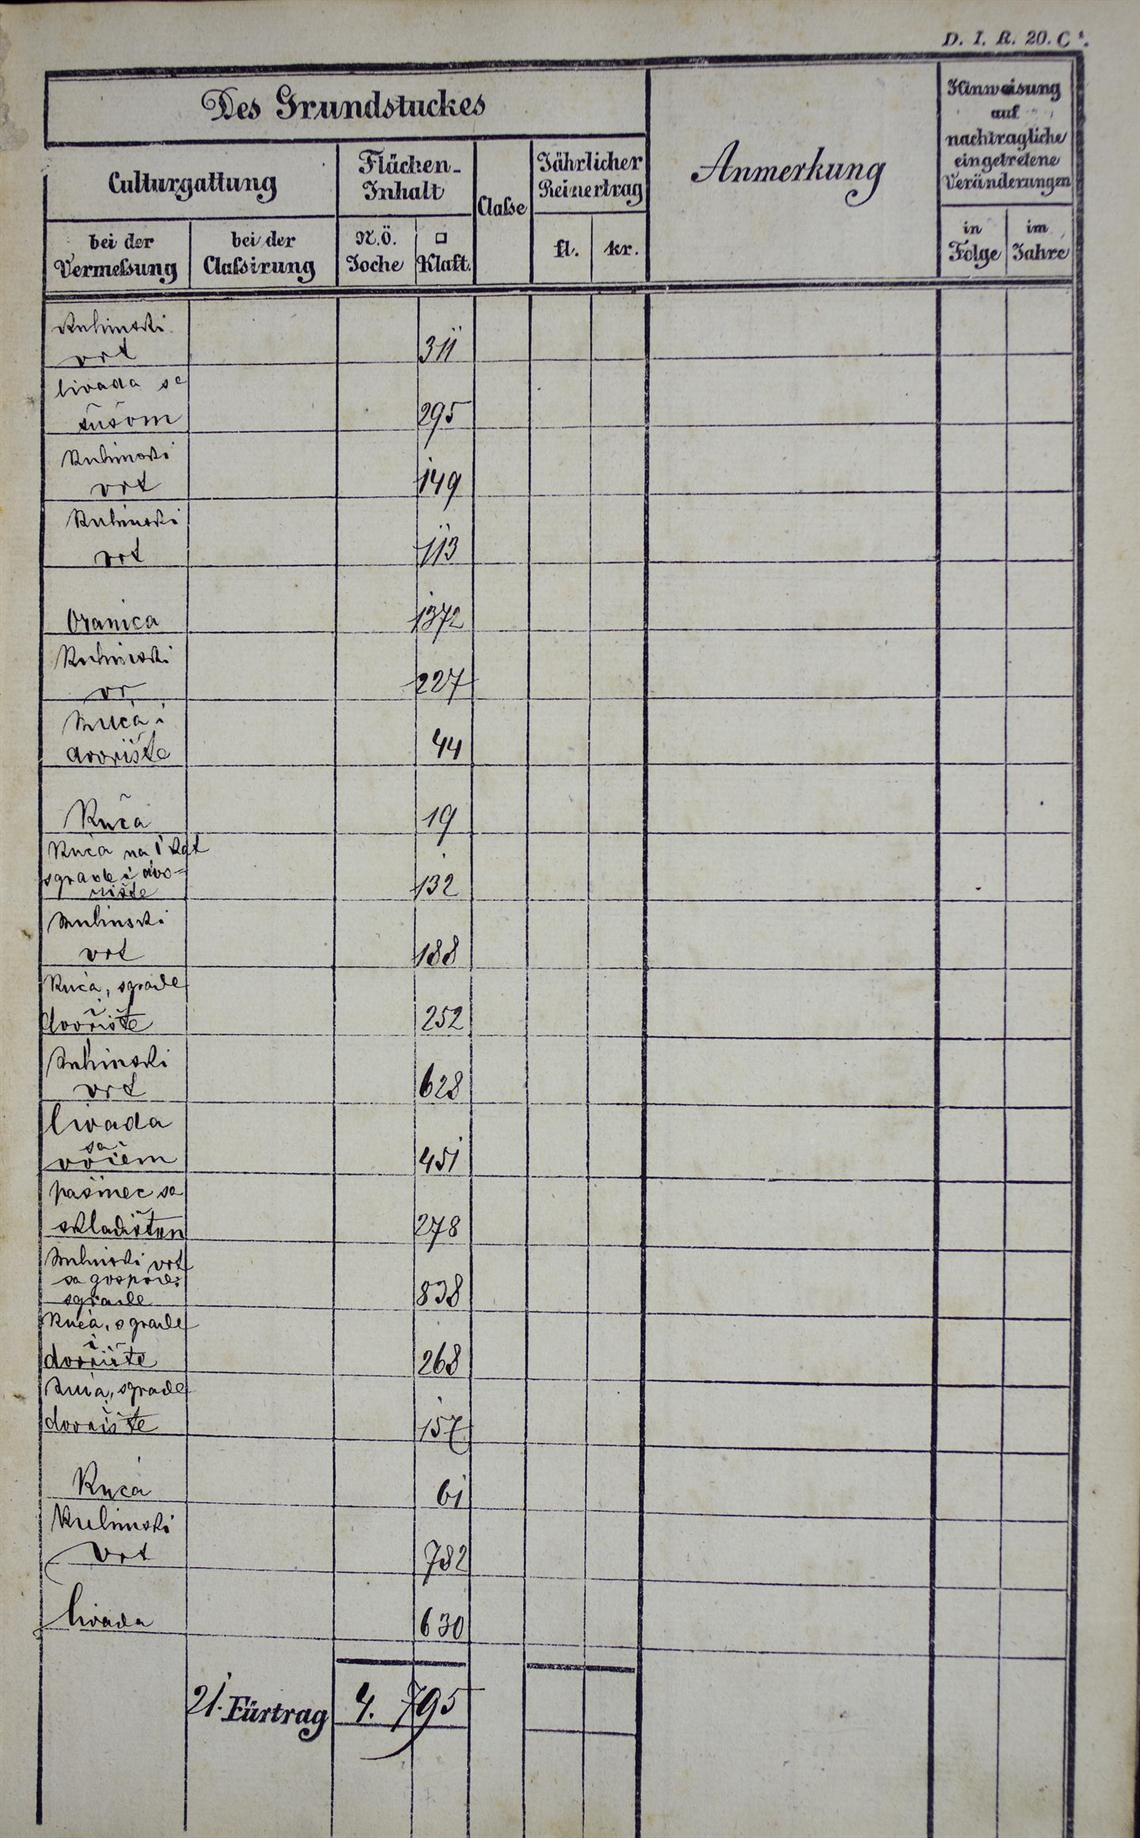 D. I. R. 20. C¹.
Des Grundstuckes
Culturgattung
Flächen-
Inhalt
Claſse
Jährlicher
Reinertrag
Anmerkung
Hinweisung
auf
nachtragliche
eingetretene
Veränderungen
bei der
Vermeſsung
bei der
Claſsirung
N.Ö.
Joche
□
Klaft.
fl.
kr.
in
Folge
im
Jahre
Kuhinski
vrt
311
livada sa
šušom
295
Kuhinski
vrt
149
Kuhinski
vrt
113
Oranica
1372
Kuhinski
vr
227
Kuća i
dvorište
44
Kuća
19
Kuća na I kat
sgrade i dvo-
rište
132
Kuhinski
vrt
188
Kuća, sgrade
i
dvorište
252
Kuhinski
vrt
628
livada
sa
voćem
451
pašinec sa
skladišten
278
Kuhinski vrt
sa gospod.
sgrade
838
Kuća, sgrade
i
dvorište
268
Kuća, sgrade
i
dvorište
157
Kuća
61
Kuhinski
vrt
782
livada
630
21. Fürtrag 4. 795